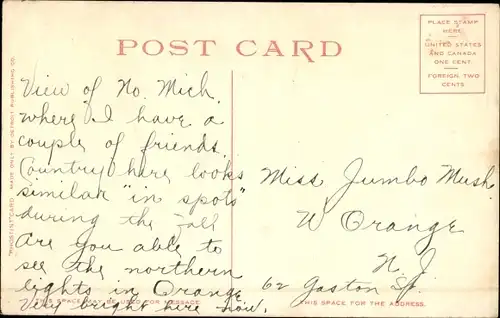 POST CARD
PLACE STAMP
HERE
UNITED STATES
AND CANADA
ONE CENT
FOREIGN, TWO
CENTS
"PHOSTINT" CARD MADE ONLY BY DETROIT PUBLISHING CO.
View of No. Mich.
where I have a
couple of friends.
Country here looks
similar "in spots"
during the Fall
Are you able to
see the northern
lights in Orange
Very bright here now.
THIS SPACE MAY BE USED FOR MESSAGE.
Miss Jumbo Mush.
W Orange
N J
62 Gaston St.
THIS SPACE FOR THE ADDRESS.